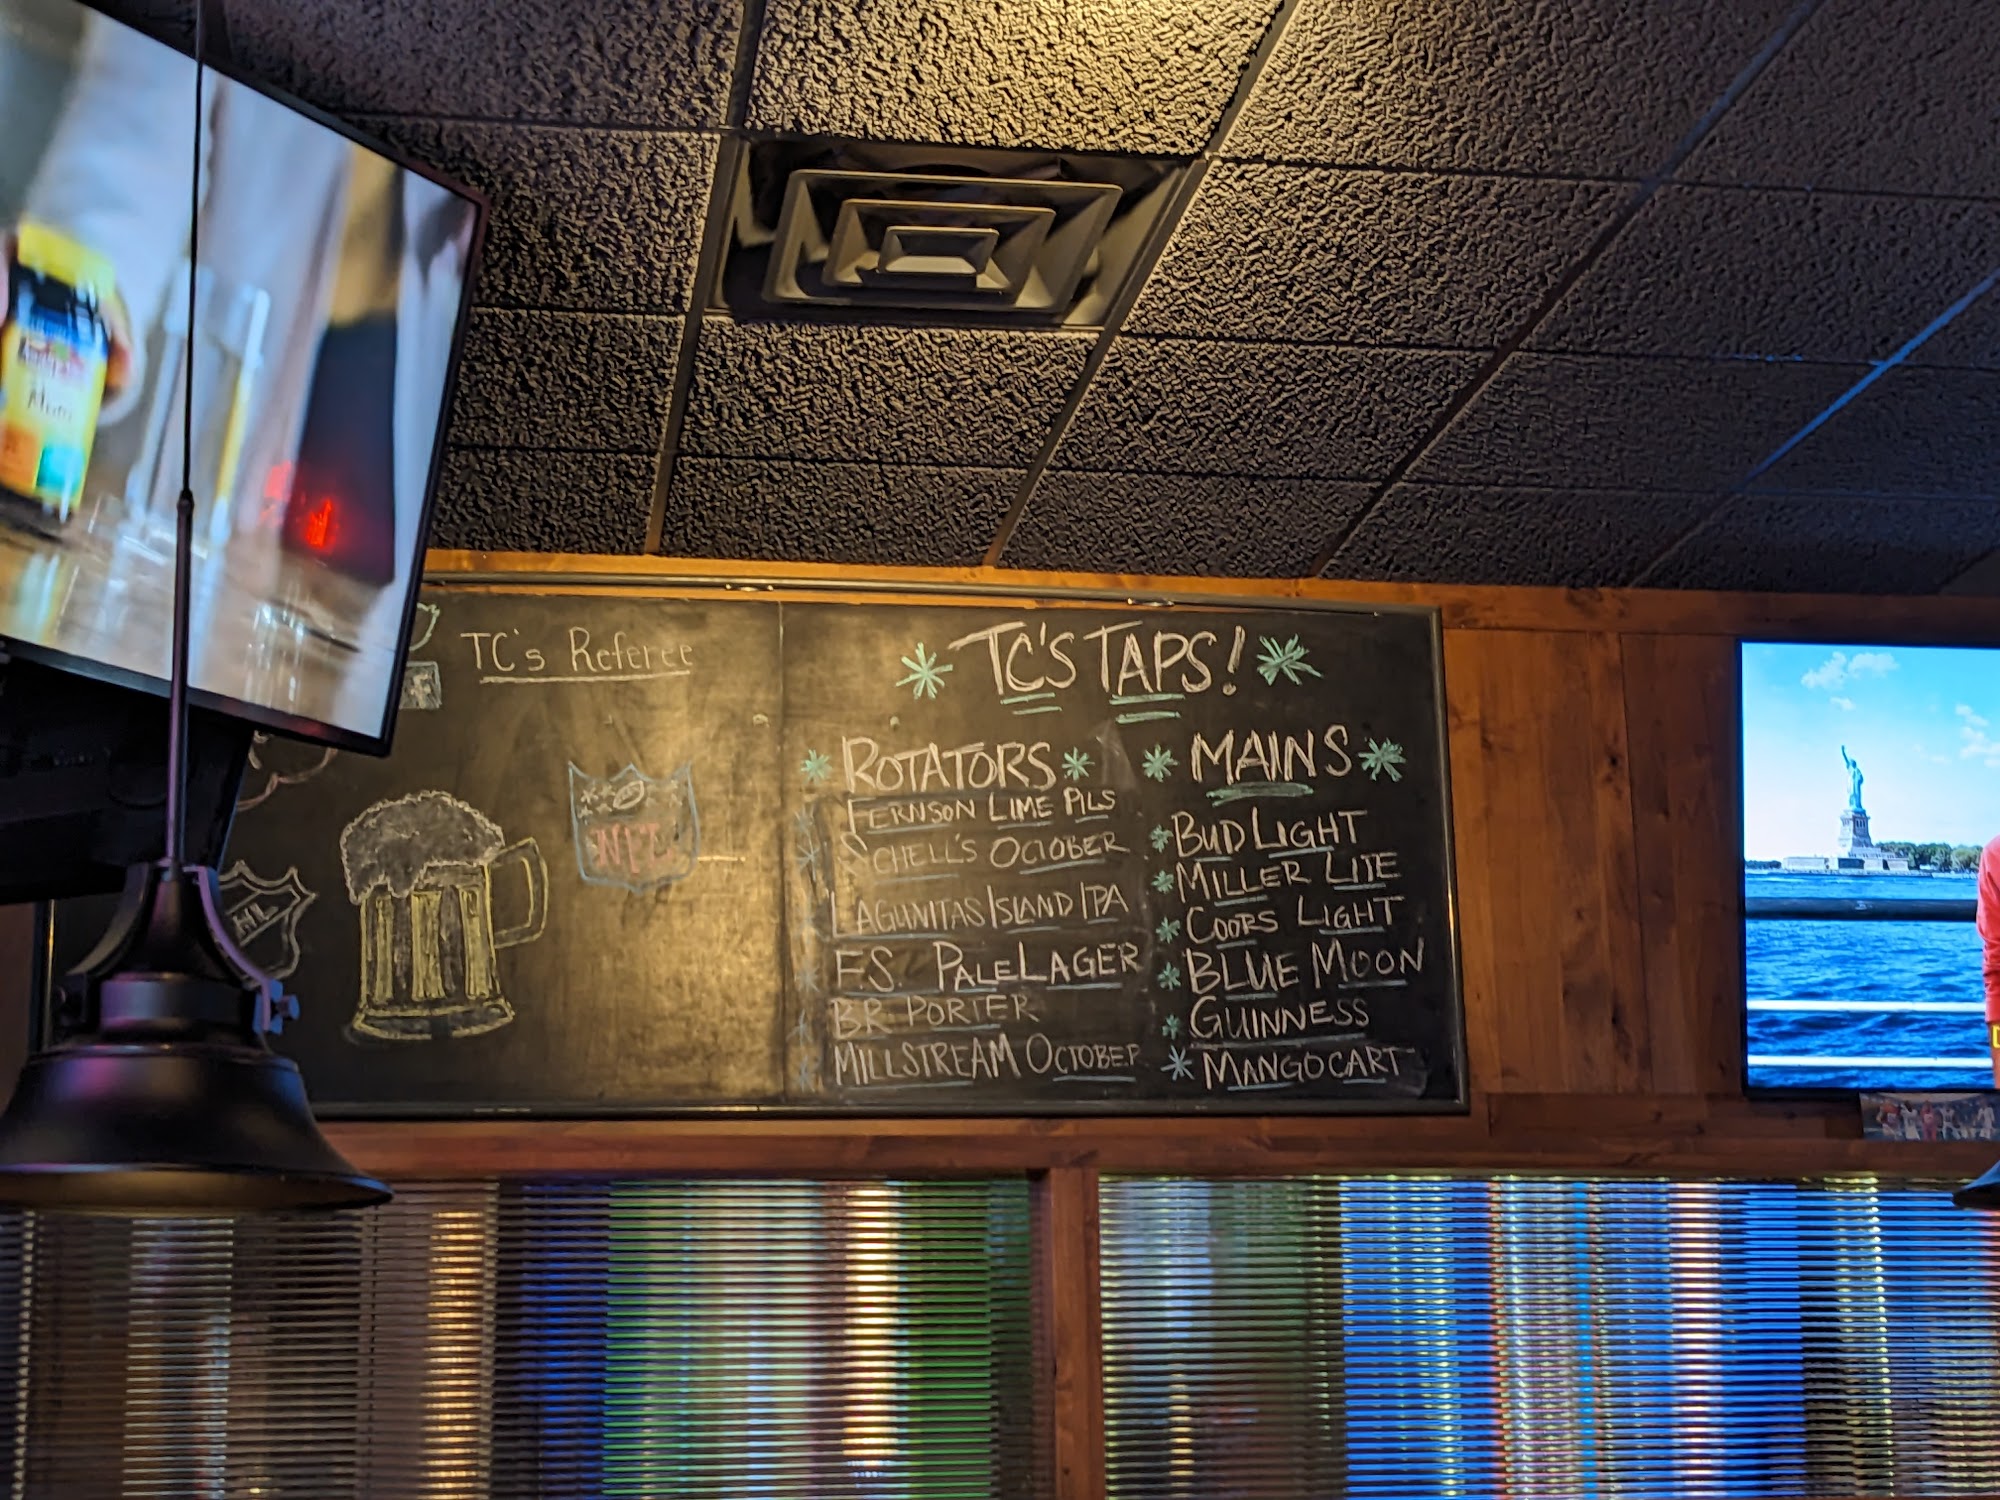 TC's Referee
TC'S TAPS!
ROTATORS
FERNSON LIME PILS
SCHELL'S OCTOBER
LAGUNITAS ISLAND IPA
F.S. PALE LAGER
BR PORTER
MILLSTREAM OCTOBER
MAINS
BUD LIGHT
MILLER LITE
COORS LIGHT
BLUE MOON
GUINNESS
MANGO CART
NFL
NHL